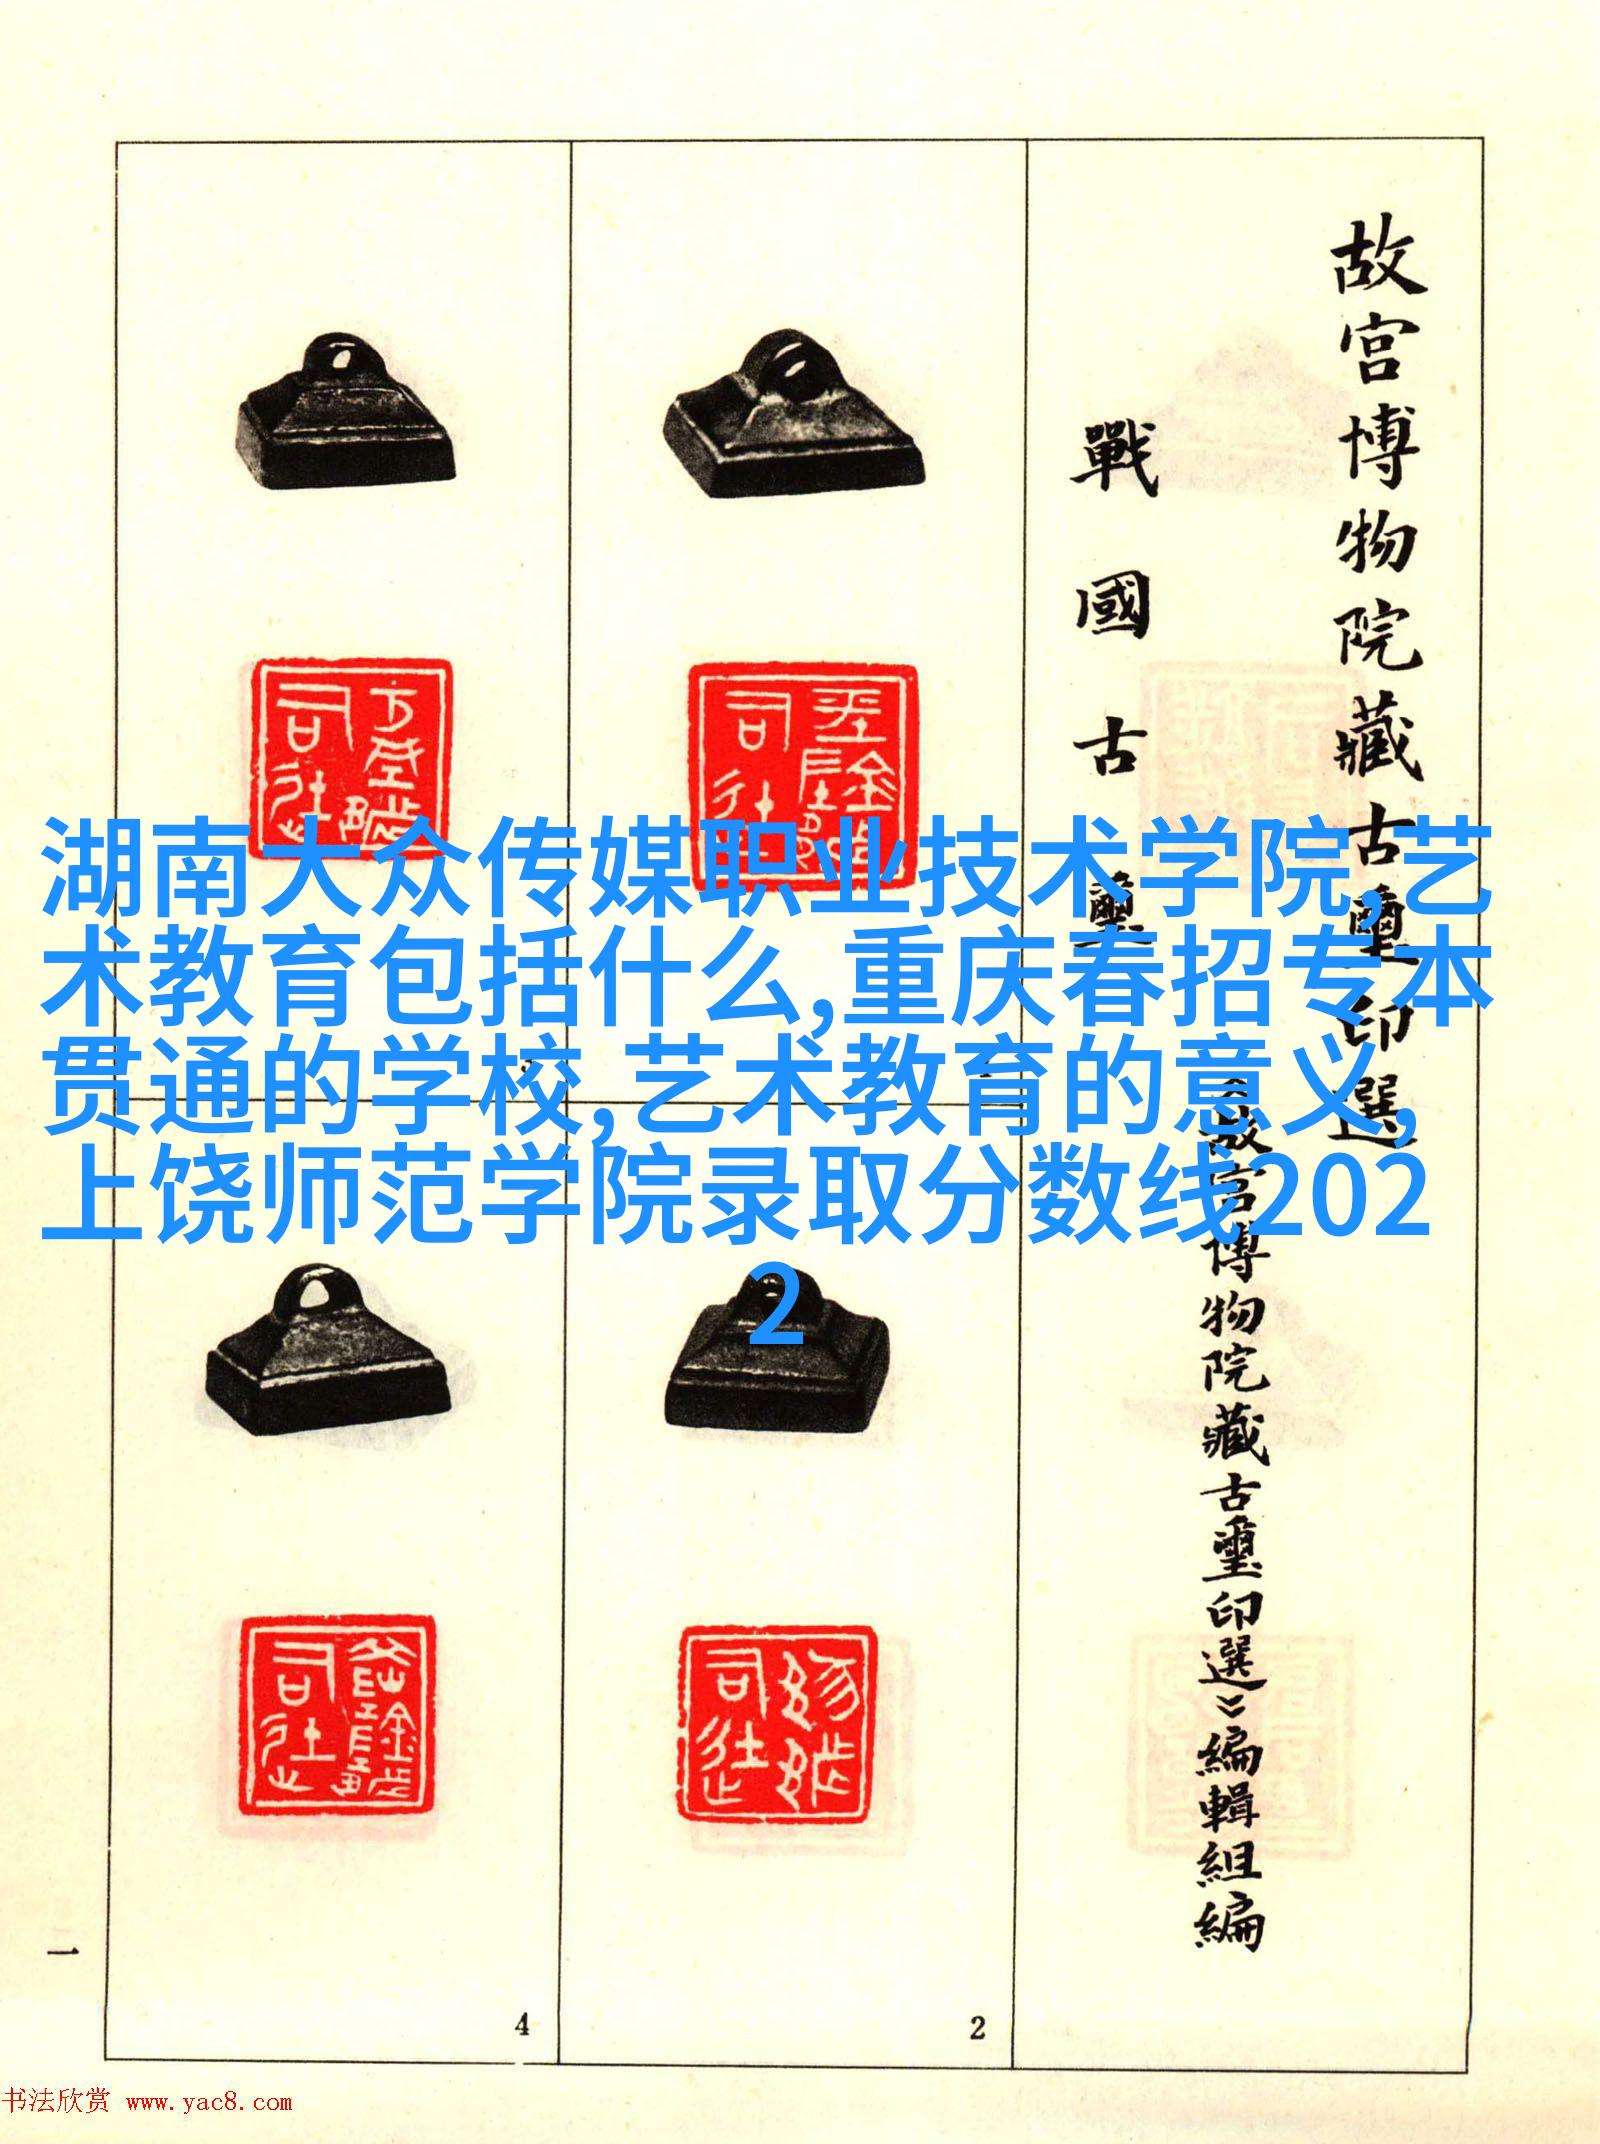 故宫博物院藏古璽印選
戰國古璽
《故宫博物院藏古璽印選》編輯組編
湖南大众传媒职业技术学院,艺
术教育包括什么,重庆春招专本
贯通的学校,艺术教育的意义,
上饶师范学院录取分数线202
2
一
4
2
书法欣赏 www.yac8.com